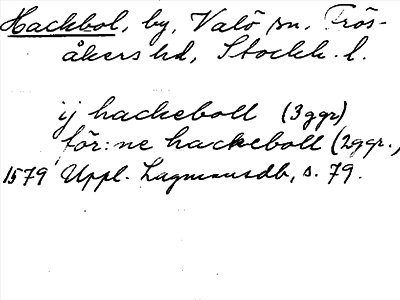 Hackbol, by, Valö sn. Frös-
åkers hd, Stockh. l.
ij hackeboll (3ggr)
för:ne hackeboll (2ggr.,
1579 Uppl. Lagmansdb, s. 79.